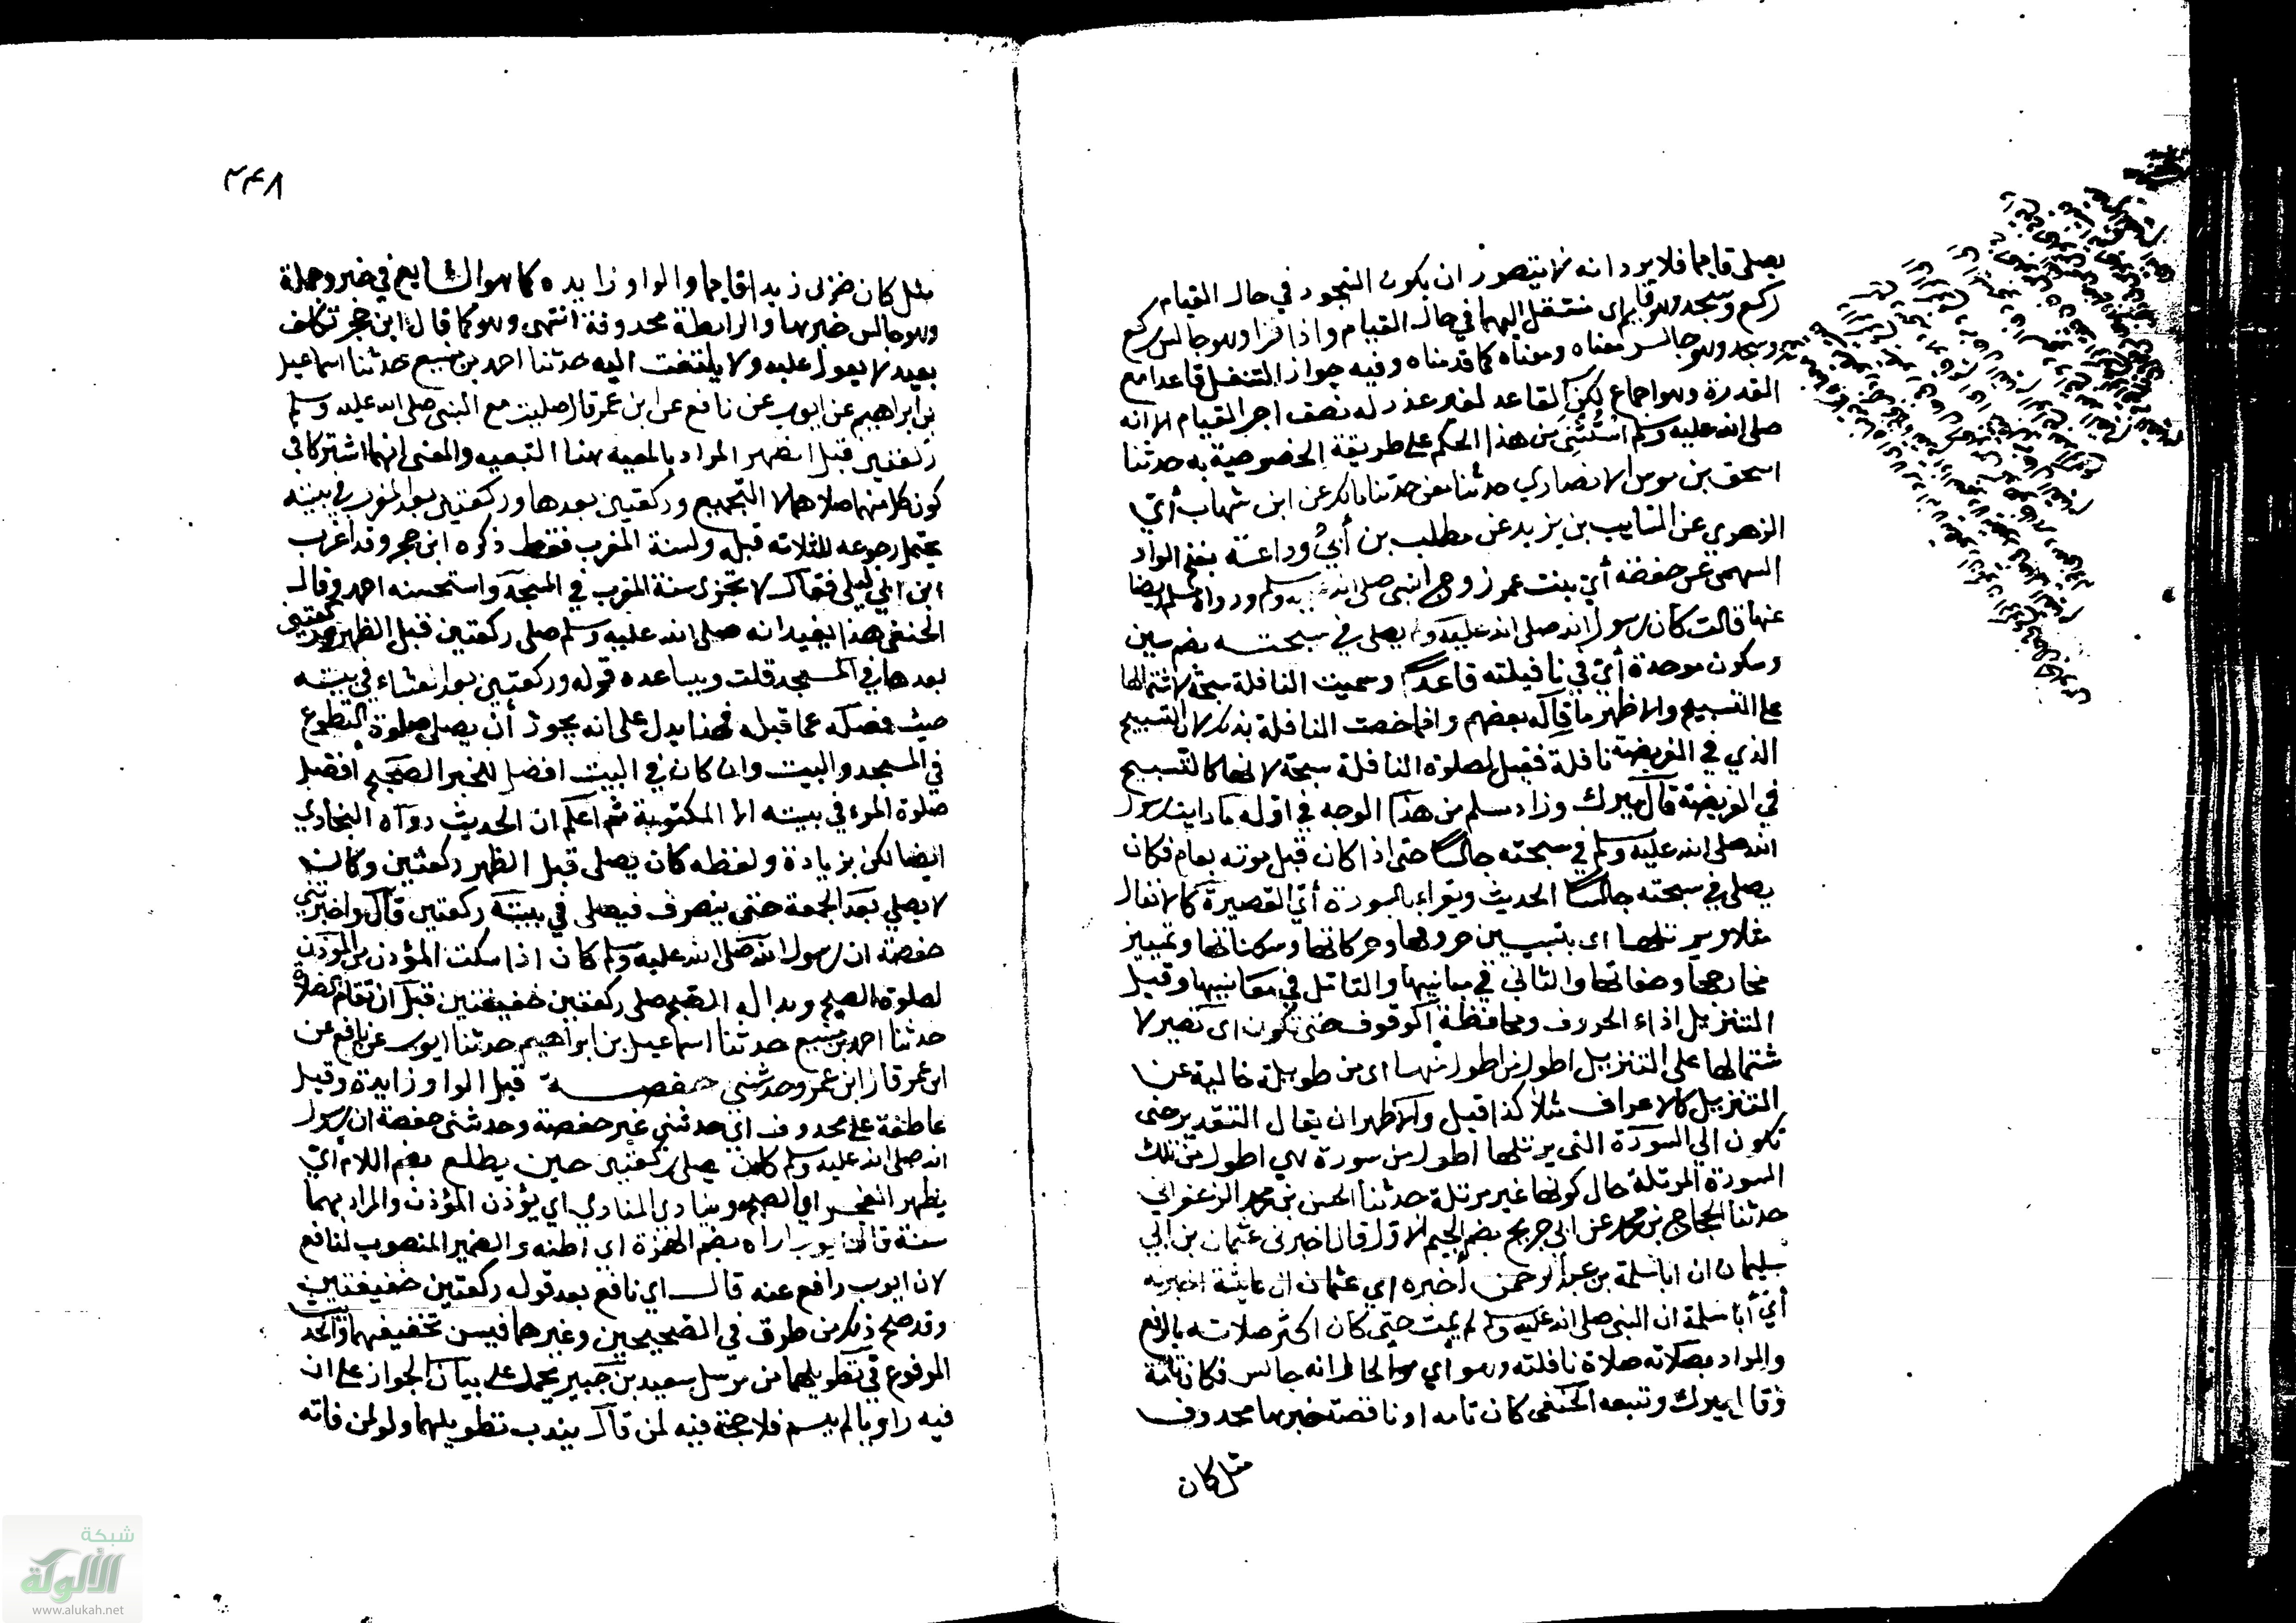 يصلي قايما فلا يرد انه لا يتصور ان يكون السجود في حال القيام
ركع وسجد وهو قايم اي منتقل اليهما في حال القيام واذا قرا وهو جالس ركع
وسجد وهو جالس معناه ومعناه كما قدمناه وفيه جواز التنفل قاعدا مع
القدرة وهو اجماع لكن القاعد لغير عذر له نصف اجر القيام الا انه
صلى الله عليه وسلم استثني من هذا الحكم على طريقة الخصوصية به حدثنا
اسحق بن موسى الانصاري حدثنا معن حدثنا مالك عن ابن شهاب أي
الزهري عن السايب بن يزيد عن مطلب بن أبي وداعة بفتح الواو
السهمي عن حفصة أي بنت عمر زوج النبي صلى الله عليه وسلم ورواه مسلم ايضا
عنها قالت كان رسول الله صلى الله عليه وسلم يصلي في سبحته بضم سين
وسكون موحدة أي في نافلته قاعدا وسميت النافلة سبحة لاشتمالها
على التسبيح والاظهر ما قاله بعضهم وانما خصت النافلة بذلك لان التسبيح
الذي في الفريضة نافلة فقيل لصلوة النافلة سبحة لانها كالتسبيح
في الفريضة قال ميرك وزاد مسلم من هذا الوجه في اوله ما رايت رسول
الله صلى الله عليه وسلم في سبحته جالسا حتى اذا كان قبل موته بعام فكان
يصلي في سبحته جالسا الحديث ويقراء بالسورة أي القصيرة كالانفال
مثلا ويرتلها اي بتبيين حروفها وحركاتها وسكناتها وتمييز
مخارجها وصفاتها والتاني في مبانيها والتامل في معانيها وقيل
التنزيل اداء الحروف ومحافظة الوقوف حتى تكون اي تصير لا
شتمالها على التنزيل اطول من اطول منها اي من طويلة خالية عن
التنزيل كالاعراف مثلا كذا قيل والاظهر ان يقال التقدير حتى
تكون الي السورة التي يرتلها اطول من سورة هي اطول من تلك
السورة المرتلة حال كونها غير مرتلة حدثنا الحسن بن محمد الزعفراني
حدثنا الحجاج بن محمد عن ابي جريج بضم الجيم الاول قال اخبرني عثمان بن ابي
سليمان ان ابا سلمة بن عبد الرحمن أخبره اي عثمان ان عايشة اخبرته
أي أبا سلمة ان النبي صلى الله عليه وسلم لم يمت حتى كان اكثر صلاته بالرفع
والمراد بصلاته صلاة نافلته وهو أي والحال انه جالس فكان تامة
وقال ميرك وتبعه الحنفي كان تامه او ناقصة خبرها محذوف
مثل كان
٢٤٨
مثل كان ضربي زيدا قايما والواو زايده كما هو الشايع في خبر وجملة
وهو جالس خبرها والرابطة محذوفة انتهى وهو كما قال ابن حجر تكلف
بعيد لا يعول عليه ولا يلتفت اليه حدثنا احمد بن منيع حدثنا اسماعيل
بن ابراهيم عن ايوب عن نافع عن ابن عمر قال صليت مع النبي صلى الله عليه وسلم
ركعتين قبل الظهر المراد بالمعية هنا التبعيه والمعنى انهما اشتركا في
كون كل منهما صلاهما لا التجميع وركعتين بعدها وركعتين بعد المغرب في بيته
يحتمل رجوعه للثلاثه قبله ولسنة المغرب فقط ذكره ابن حجر وقد اغرب
ابن ابي ليلى فقال لا تجزي سنة المغرب في المسجد واستحسنه احمد وقال
الحنفي هذا يفيد انه صلى الله عليه وسلم صلى ركعتين قبل الظهر وركعتين
بعدها في المسجد قلت ويساعده قوله وركعتين بعد العشاء في بيته
حيث فصله عما قبله فهذا يدل على انه يجوز أن يصلي صلوة التطوع
في المسجد والبيت وان كان في البيت افضل للخبر الصحيح افضل
صلوة المرء في بيته الا المكتوبة ثم اعلم ان الحديث رواه البخاري
ايضا لكن بزيادة ولفظه كان يصلي قبل الظهر ركعتين وكان
لا يصلي بعد الجمعة حتى ينصرف فيصلي في بيته ركعتين قال واخبرتني
حفصة ان رسول الله صلى الله عليه وسلم كان اذا سكت المؤذن من المؤذن
لصلوة الصبح وبدا له الصبح صلى ركعتين خفيفتين قبل ان تقام الصلاة
حدثنا احمد بن منيع حدثنا اسماعيل بن ابراهيم حدثنا ايوب عن نافع عن
ابن عمر قال ابن عمر وحدثتني حفصة قيل الواو زايدة وقيل
عاطفة على محذوف اي حدثني غير حفصة وحدثتني حفصة ان رسول
الله صلى الله عليه وسلم كان يصلي ركعتين حين يطلع بضم اللام أي
يظهر الفجر اي الصبح وينادي المنادي اي يؤذن المؤذن والمراد بهما
سنة قال ايوب اراه بضم الهمزة اي اظنه والضمير المنصوب لنافع
لان ايوب رافع عنه قال اي نافع بعد قوله ركعتين خفيفتين
وقد صح ذلك من طرق في الصحيحين وغيرهما فيسن تخفيفهما والحديث
المرفوع في تطويلهما من مرسل سعيد بن جبير يحمل على بيان الجواز على ان
فيه راويا لم يسم فلا حجة فيه لمن قال يندب تطويلهما ولو لمن فاته
شبكة
الألوكة
www.alukah.net